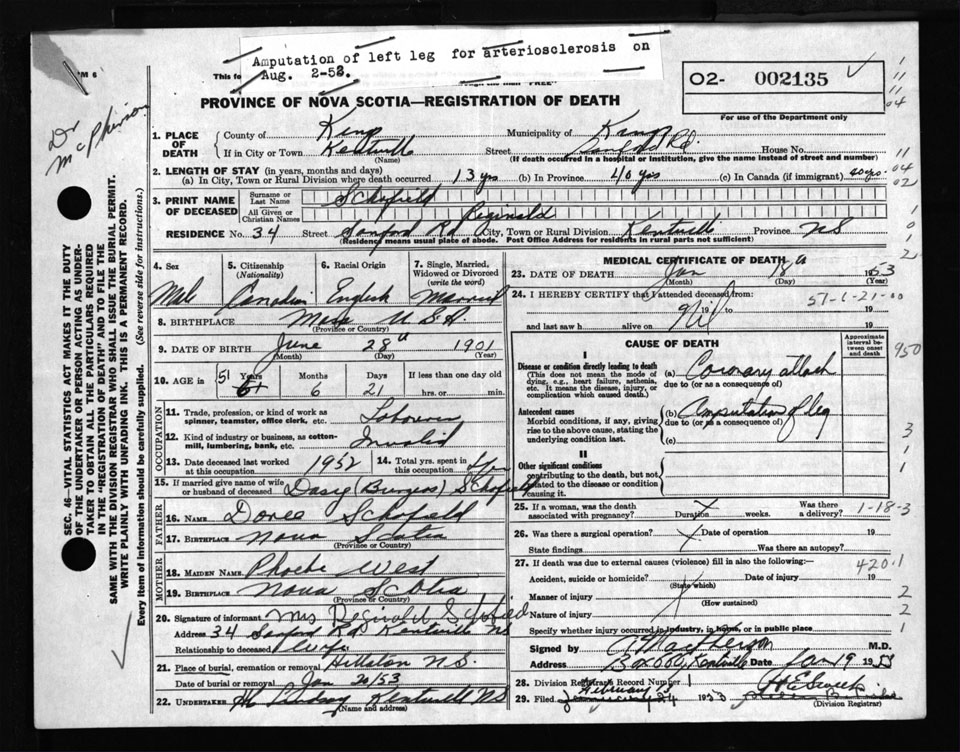 Amputation of left leg for arteriosclerosis on
Aug. 2-52.
M 6
This fo
O2- 002135
Dr
McPherson
PROVINCE OF NOVA SCOTIA—REGISTRATION OF DEATH
For use of the Department only
1. PLACE OF DEATH
County of Kings Municipality of Kings
If in City or Town Kentville Street Rd. House No.
(Name) (If death occurred in a hospital or institution, give the name instead of street and number)
2. LENGTH OF STAY (in years, months and days)
(a) In City, Town or Rural Division where death occurred 13 yrs (b) In Province 40 yrs (c) In Canada (if immigrant) 40 yrs.
3. PRINT NAME OF DECEASED
Surname or Last Name Schofield
All Given or Christian Names Reginald
RESIDENCE No. 34 Street Sanford Rd City, Town or Rural Division Kentville Province NS
(Residence means usual place of abode. Post Office Address for residents in rural parts not sufficient)
4. Sex Male
5. Citizenship (Nationality) Canadian
6. Racial Origin English
7. Single, Married, Widowed or Divorced (write the word) Married
8. BIRTHPLACE Mass U.S.A.
(Province or Country)
9. DATE OF BIRTH June 28th 1901
(Month) (Day) (Year)
10. AGE in 51 Years 6 Months 21 Days If less than one day old hrs. or min.
OCCUPATION
11. Trade, profession, or kind of work as spinner, teamster, office clerk, etc. Labourer
12. Kind of industry or business, as cotton-mill, lumbering, bank, etc. Invalid
13. Date deceased last worked at this occupation 1952
14. Total yrs. spent in this occupation
15. If married give name of wife or husband of deceased Daisy (Burgess) Schofield
FATHER
16. NAME Schofield
17. BIRTHPLACE Nova Scotia
(Province or Country)
MOTHER
18. MAIDEN NAME Phoebe West
19. BIRTHPLACE Nova Scotia
(Province or Country)
20. Signature of informant Mrs Reginald Schofield
Address 34 Sanford Rd Kentville NS
Relationship to deceased Wife
21. Place of burial, cremation or removal N.S.
Date of burial or removal Jan 20/53
22. UNDERTAKER Kentville NS
(Name and address)
MEDICAL CERTIFICATE OF DEATH
23. DATE OF DEATH Jan 18th 1953
(Month) (Day) (Year)
24. I HEREBY CERTIFY that I attended deceased from
51-6-21-00
19 to 19
Nil
and last saw h alive on 19
CAUSE OF DEATH
Approximate interval between onset and death
I
Disease or condition directly leading to death
(This does not mean the mode of dying, e.g., heart failure, asthenia, etc. It means the disease, injury, or complication which caused death.)
(a) Coronary attack
due to (or as a consequence of)
Antecedent causes
Morbid conditions, if any, giving rise to the above cause, stating the underlying condition last.
(b) Amputation of leg
due to (or as a consequence of)
(c)
II
Other significant conditions
contributing to the death, but not related to the disease or condition causing it.
25. If a woman, was the death associated with pregnancy? Duration weeks. Was there a delivery?
1-18-3
26. Was there a surgical operation? Date of operation 19
State findings Was there an autopsy?
27. If death was due to external causes (violence) fill in also the following:
420.1
Accident, suicide or homicide? Date of injury 19
(State which)
Manner of injury
(How sustained)
Nature of injury
Specify whether injury occurred in industry, in home, or in public place
Signed by MacPherson M.D.
Address Box Kentville Date Jan 19 1953
28. Division Registrar Record No. 1
29. Filed February 1953
(Division Registrar)
SEC. 46 VITAL STATISTICS ACT MAKES IT THE DUTY
OF THE UNDERTAKER OR PERSON ACTING AS UNDER-
TAKER TO OBTAIN ALL THE PARTICULARS REQUIRED
IN THE "REGISTRATION OF DEATH" AND TO FILE THE
SAME WITH THE DIVISION REGISTRAR WHO SHALL ISSUE THE BURIAL PERMIT.
WRITE PLAINLY WITH UNFADING INK. THIS IS A PERMANENT RECORD.
Every item of information should be carefully supplied. (See reverse side for instructions.)